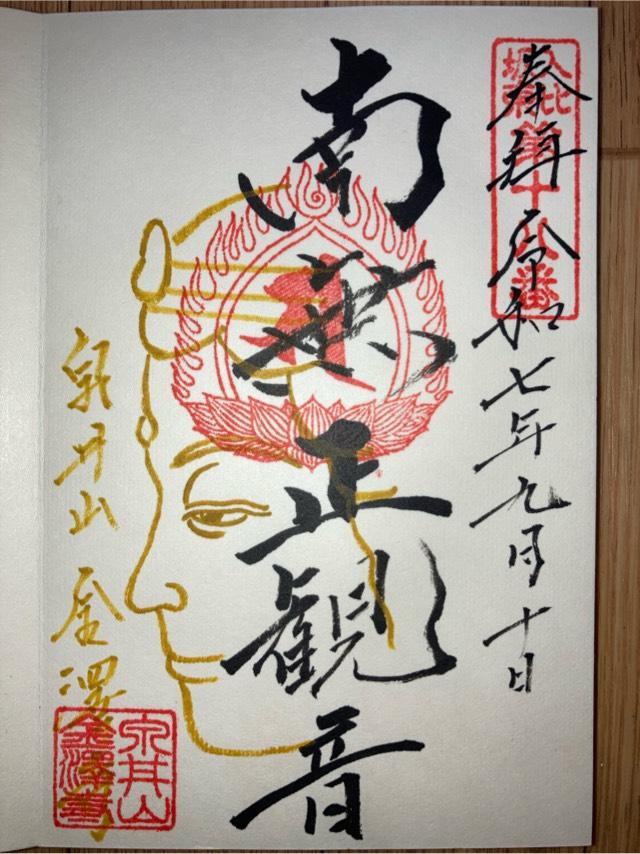 奉拝 令和七年九月十日
入比
坂東
第十八番
南無正観音
泉井山 金澤寺
泉井山
金澤寺